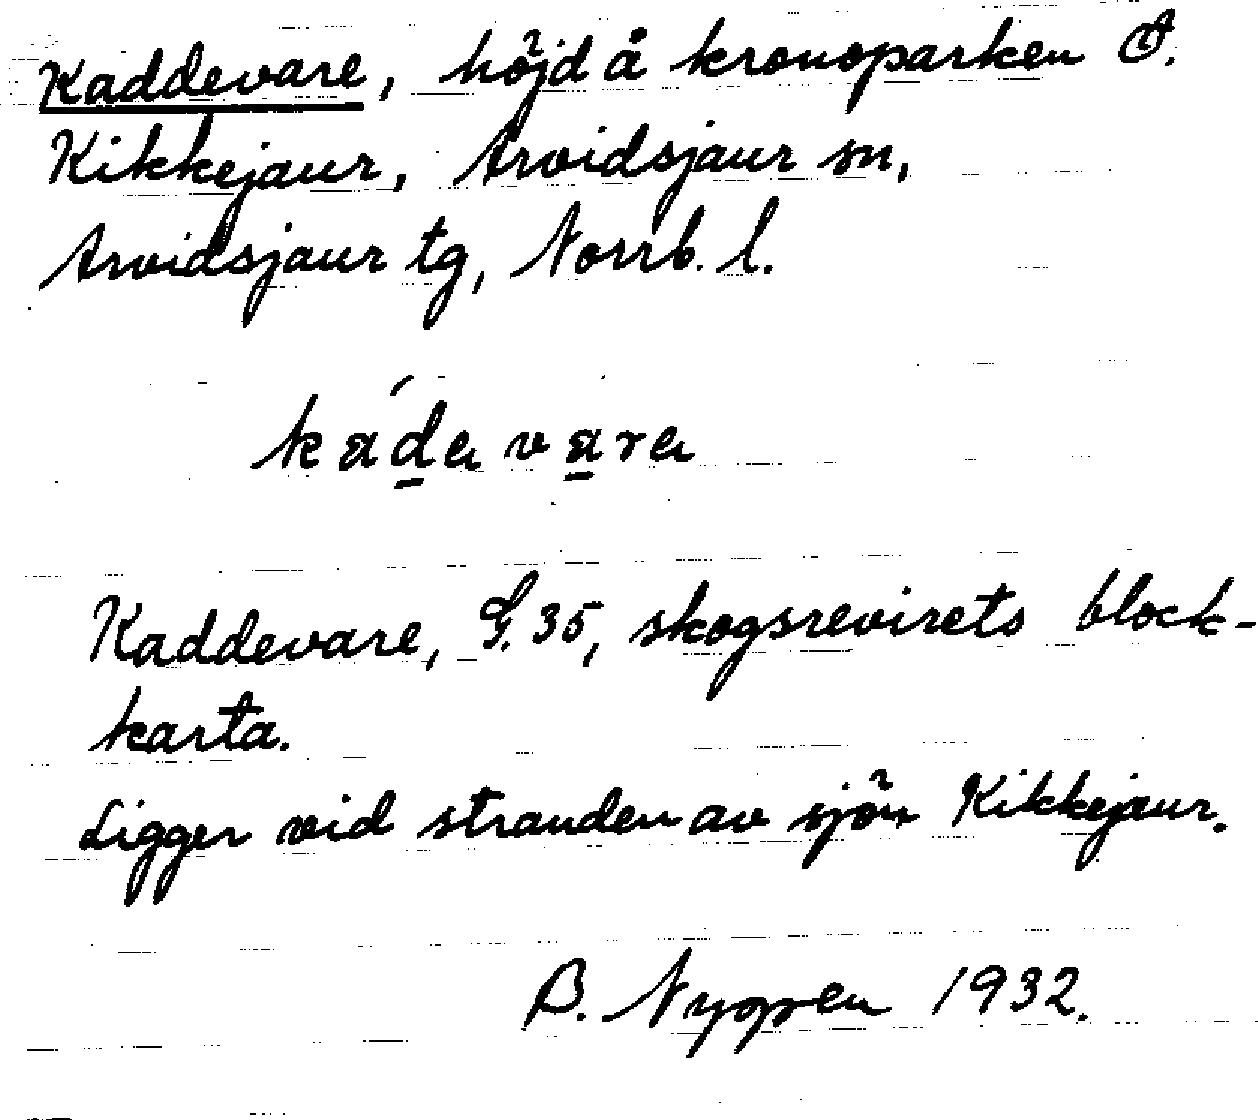 Kaddevare, höjd å kronoparken Ö.
Kikkejaur, Arvidsjaur sn,
Arvidsjaur tg, Norrb. l.
Kaddevare, G. 35, skogsrevirets block-
karta.
Ligger vid stranden av sjön Kikkejaur.
B. Nygren 1932.